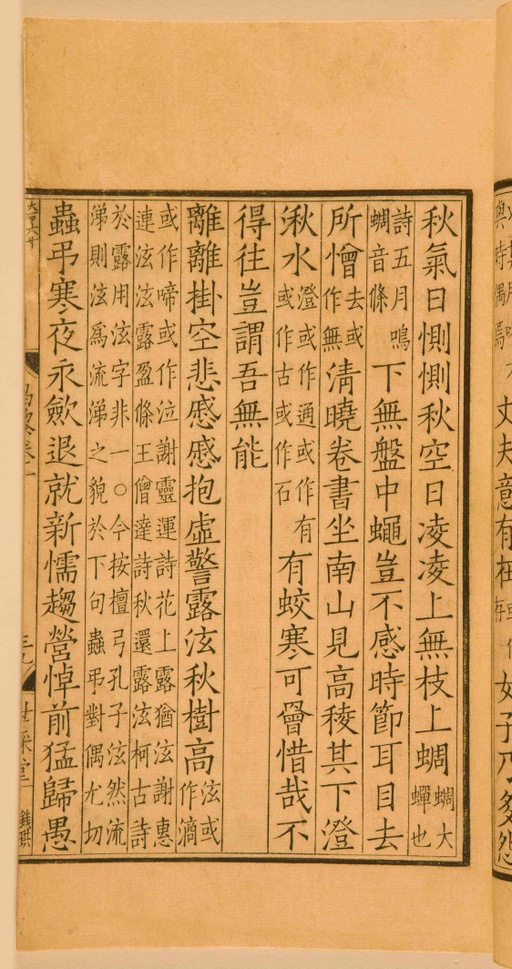 丈夫意有在女子乃多怨
秋氣日惻惻秋空日凌凌上無枝上蜩蜩大蟬也
詩五月鳴蜩音條下無盤中蠅豈不感時節耳目去
所憎去或作無清曉卷書坐南山見高稜其下澄
湫水澄或作逈或作有或作古或作石有蛟寒可罾惜哉不
得往豈謂吾無能
離離掛空悲慼慼抱虛警露泫秋樹高泫或作滴
或作啼或作泣謝靈運詩花上露猶泫謝惠
連泫泫露盈條王僧達詩秋還露泫柯古詩
於露用泫字非一○今按檀弓孔子泫然流
涕則泫爲流涕之貌於下句蟲弔對偶尤切
蟲弔寒夜永歛退就新懦趨營悼前猛歸愚
世綵堂